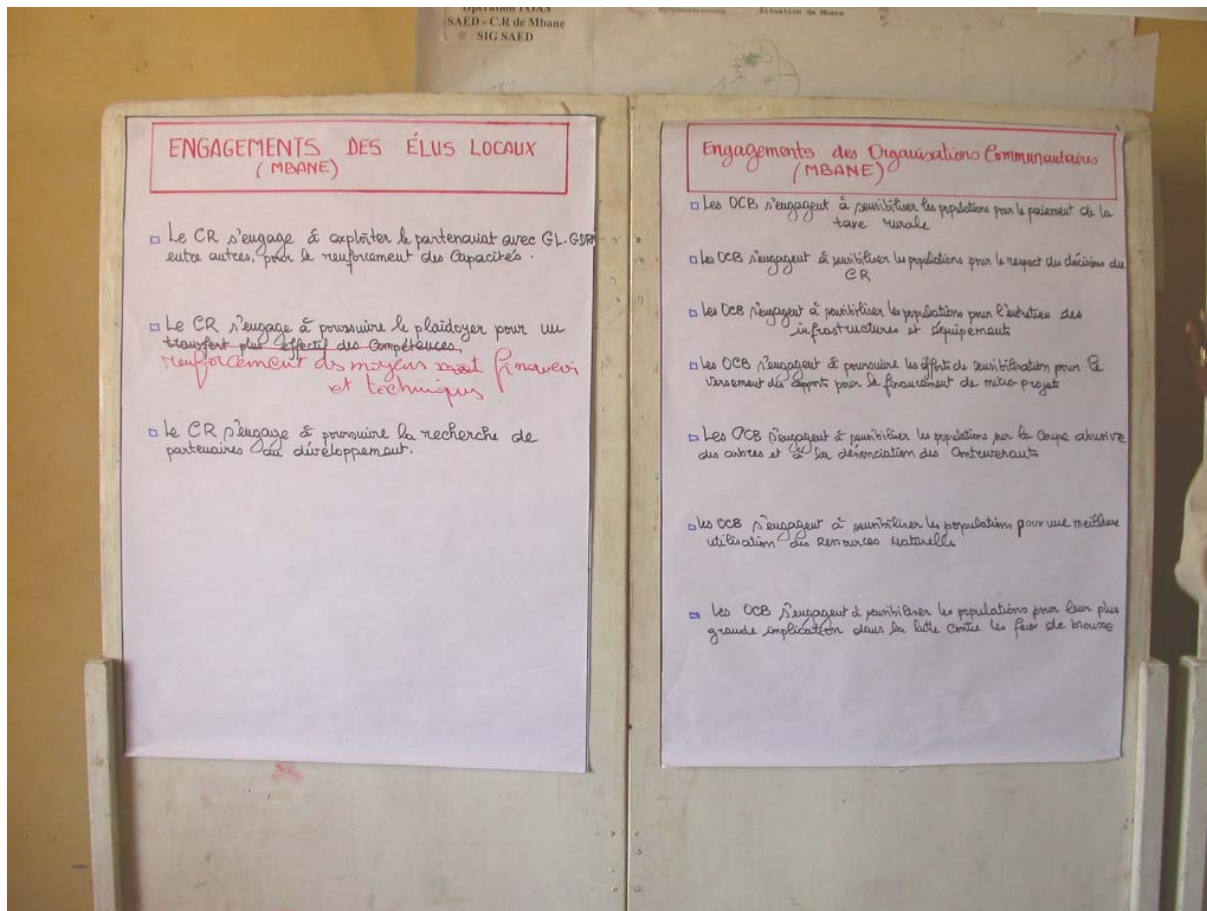 SAED - C.R de Mbane
SIG SAED
Situation de Mbane
ENGAGEMENTS DES ÉLUS LOCAUX
(MBANE)
Le CR s'engage à exploiter le partenariat avec GL-GDRN
entre autres, pour le renforcement des Capacités.
Le CR s'engage à poursuivre le plaidoyer pour un
transfert plus effectif des Compétences
renforcement des moyens financiers
et techniques
Le CR s'engage à poursuivre la recherche de
partenaires au développement.
Engagements des Organisations Communautaires
(MBANE)
Les OCB s'engagent à sensibiliser les populations pour le paiement de la
taxe rurale
Les OCB s'engagent à sensibiliser les populations pour le respect des décisions du
CR
Les OCB s'engagent à sensibiliser les populations pour l'entretien des
infrastructures et équipements
Les OCB s'engagent à poursuivre les efforts de sensibilisation pour le
versement des apports pour le financement de micro-projets
Les OCB s'engagent à sensibiliser les populations sur la Coupe abusive
des arbres et à la dénonciation des Contrevenants
Les OCB s'engagent à sensibiliser les populations pour une meilleure
utilisation des Ressources Naturelles
Les OCB s'engagent à sensibiliser les populations pour leur plus
grande implication dans la lutte contre les feux de brousse